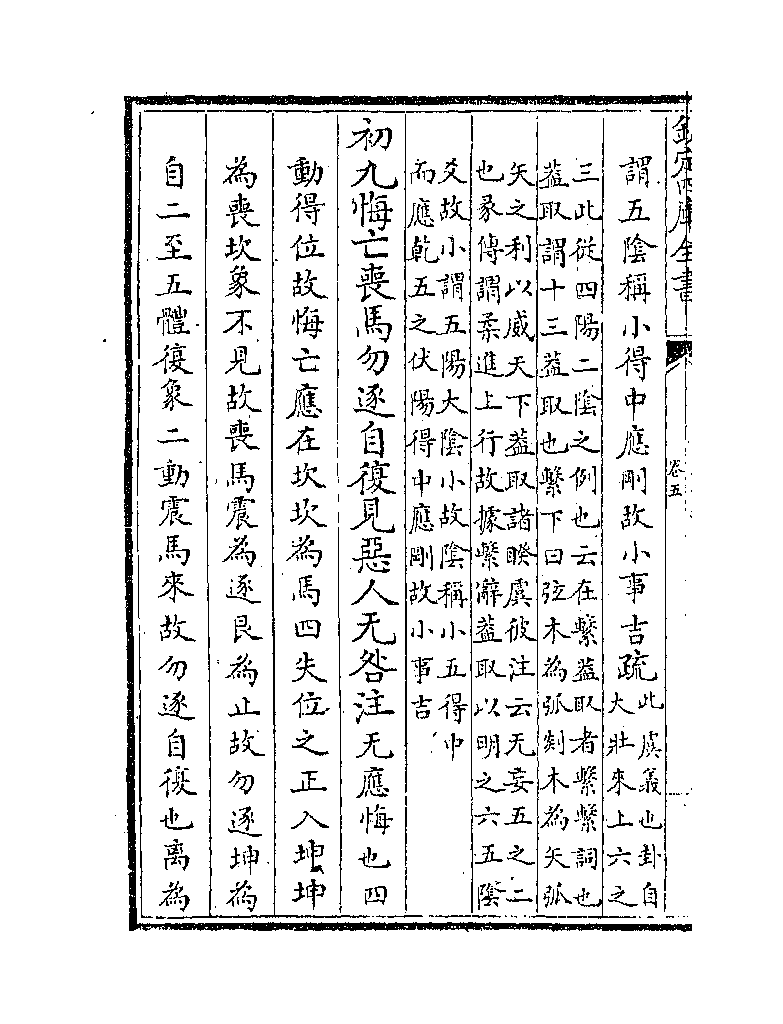 欽定四庫全書
卷五
謂五陰稱小得中應剛故小事吉疏
此虞義也卦自
大壯來上六之
三此從四陽二陰之例也云在繫蓋取者繫繫詞也
蓋取謂十三蓋取也繫下曰弦木為弧剡木為矢弧
矢之利以威天下蓋取諸睽虞彼注云无妄五之二
也彖傳謂柔進上行故據繫辭蓋取以明之六五陰
爻故小謂五陽大陰小故陰稱小五得中
而應乾五之伏陽得中應剛故小事吉
初九悔亡喪馬勿逐自復見惡人无咎注无應悔也四
動得位故悔亡應在坎坎為馬四失位之正入坤坤
為喪坎象不見故喪馬震為逐艮為止故勿逐坤為
自二至五體復象二動震馬來故勿逐自復也離為